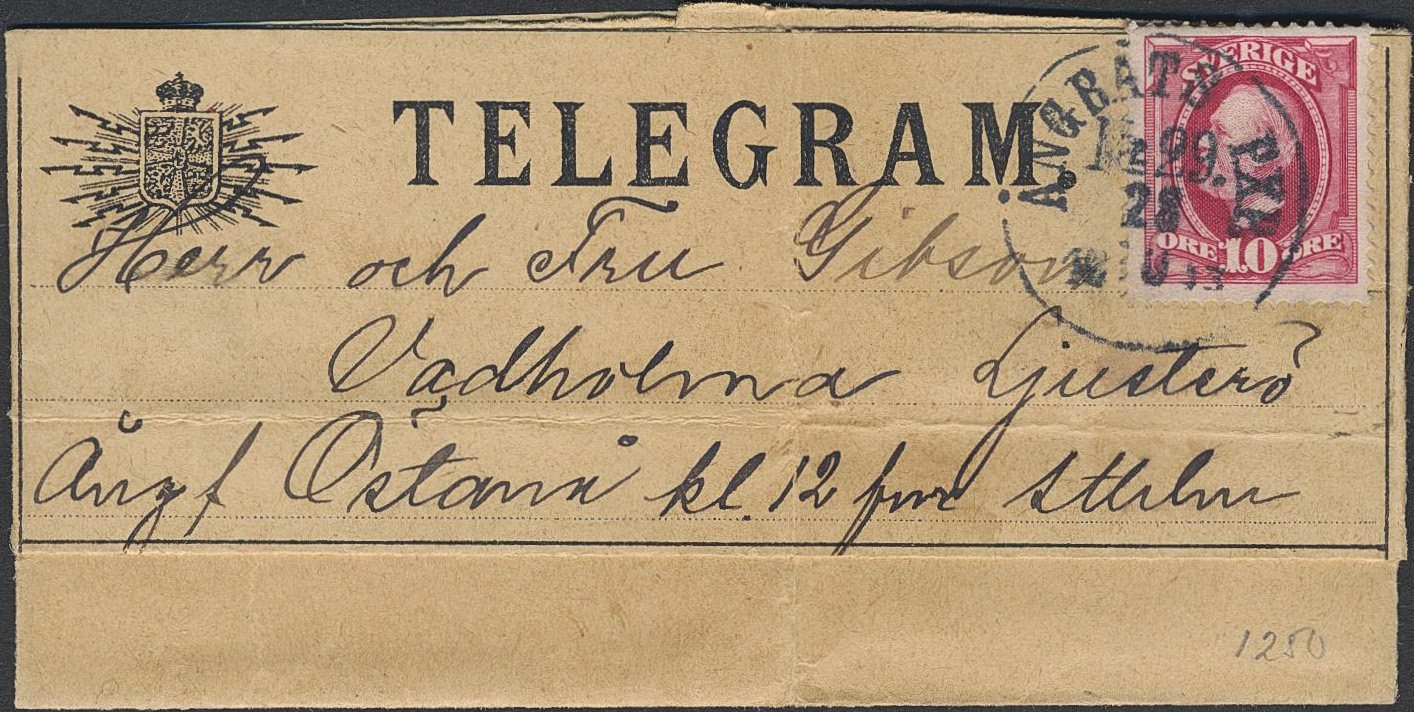 TELEGRAM.
SVERIGE
ÖRE 10 ÖRE
ÅNGBÅTS PXP
1899.
28
Herr och Fru Gibson
Vadholma Ljusterö
Ångf Östanå kl. 12 från Sthlm
1250